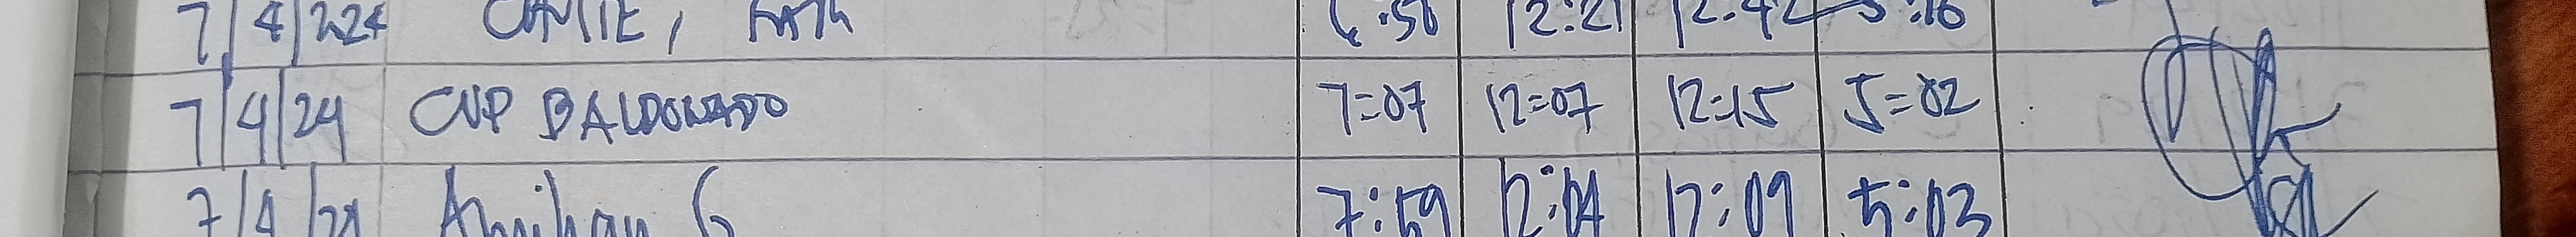 7/4/224 6:50 12:21 12:42 5:16
7/4/24 CVP BALDONADO 7=07 12=07 12=15 5=02
7/4/24 Amihan G 7:59 12:04 12:09 5:03